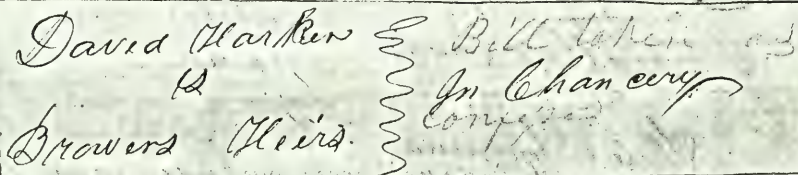 David Harken
vs
Browers Heirs.
Bill taken as
In Chancery
confessed